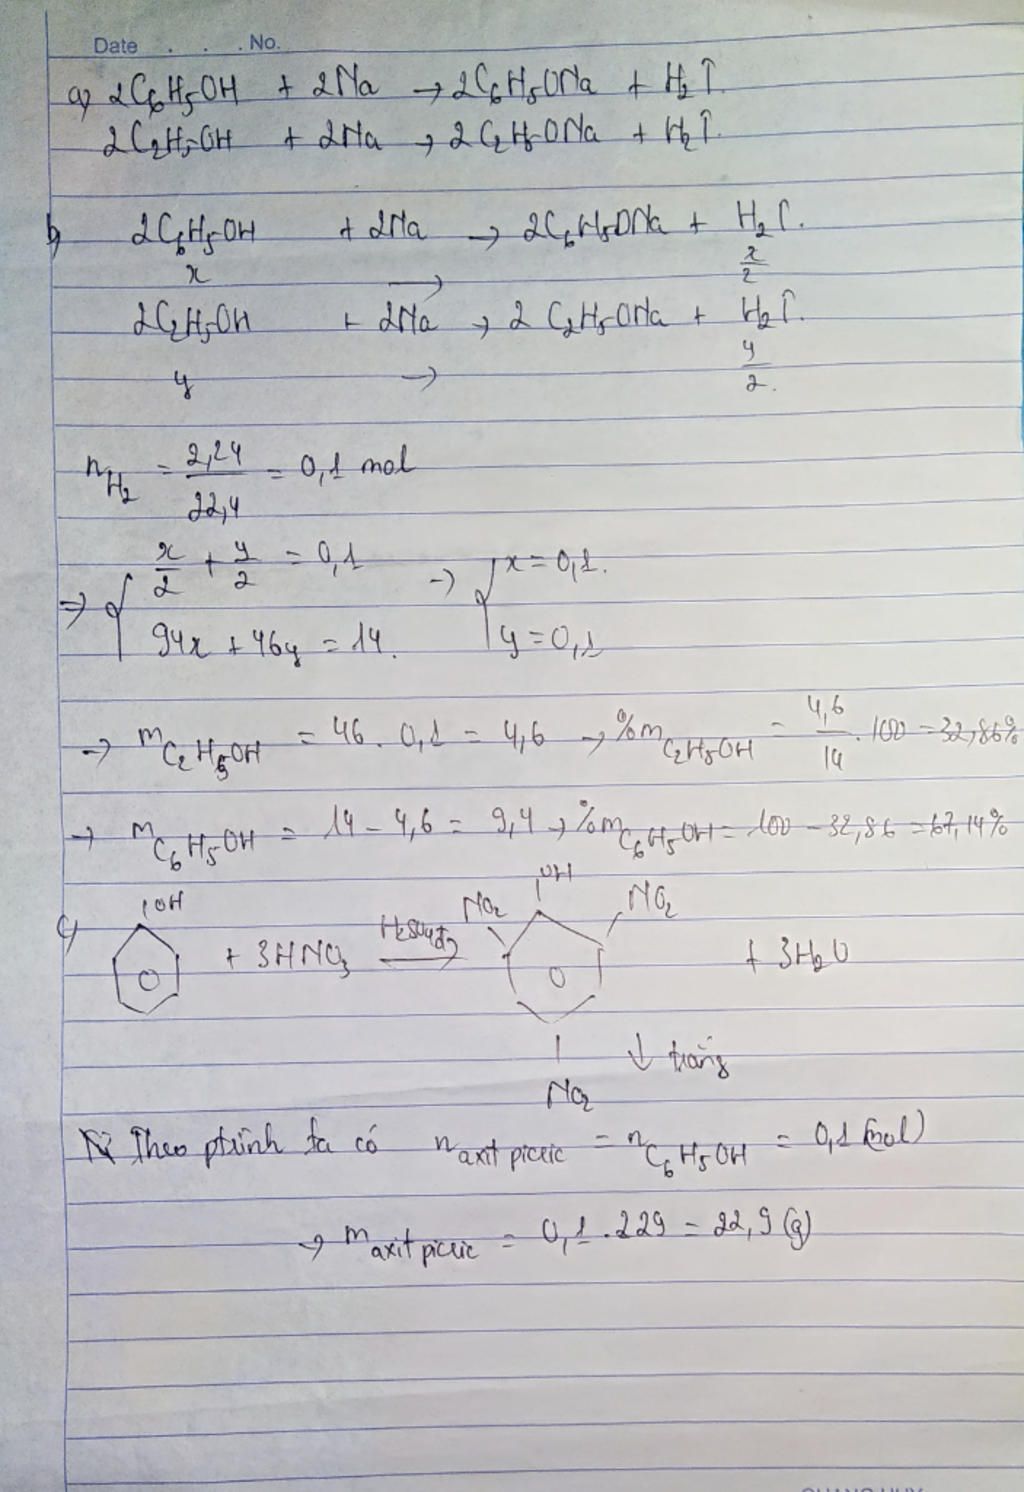 Date . . . No.
a) 2C6H5OH + 2Na → 2C6H5ONa + H2↑.
2C2H5OH + 2Na → 2C2H5ONa + H2↑.
b) 2C6H5OH + 2Na → 2C6H5ONa + H2↑.
x → x/2
2C2H5OH + 2Na → 2 C2H5ONa + H2↑.
y → y/2.
nH2 = 2,24/22,4 = 0,1 mol
⇒ { x/2 + y/2 = 0,1 → { x = 0,1.
94x + 46y = 14. y = 0,1
→ mC2H5OH = 46 . 0,1 = 4,6 → %mC2H5OH = 4,6/14 . 100 = 32,86%
→ mC6H5OH = 14 - 4,6 = 9,4 → %mC6H5OH = 100 - 32,86 = 67,14%
OH NO2 OH NO2
c) + 3HNO3 H2SO4đ + 3H2O
↓ trắng
NO2
Theo ptrình ta có naxit picric = nC6H5OH = 0,1 (mol)
→ maxit picric = 0,1 . 229 = 22,9 (g)